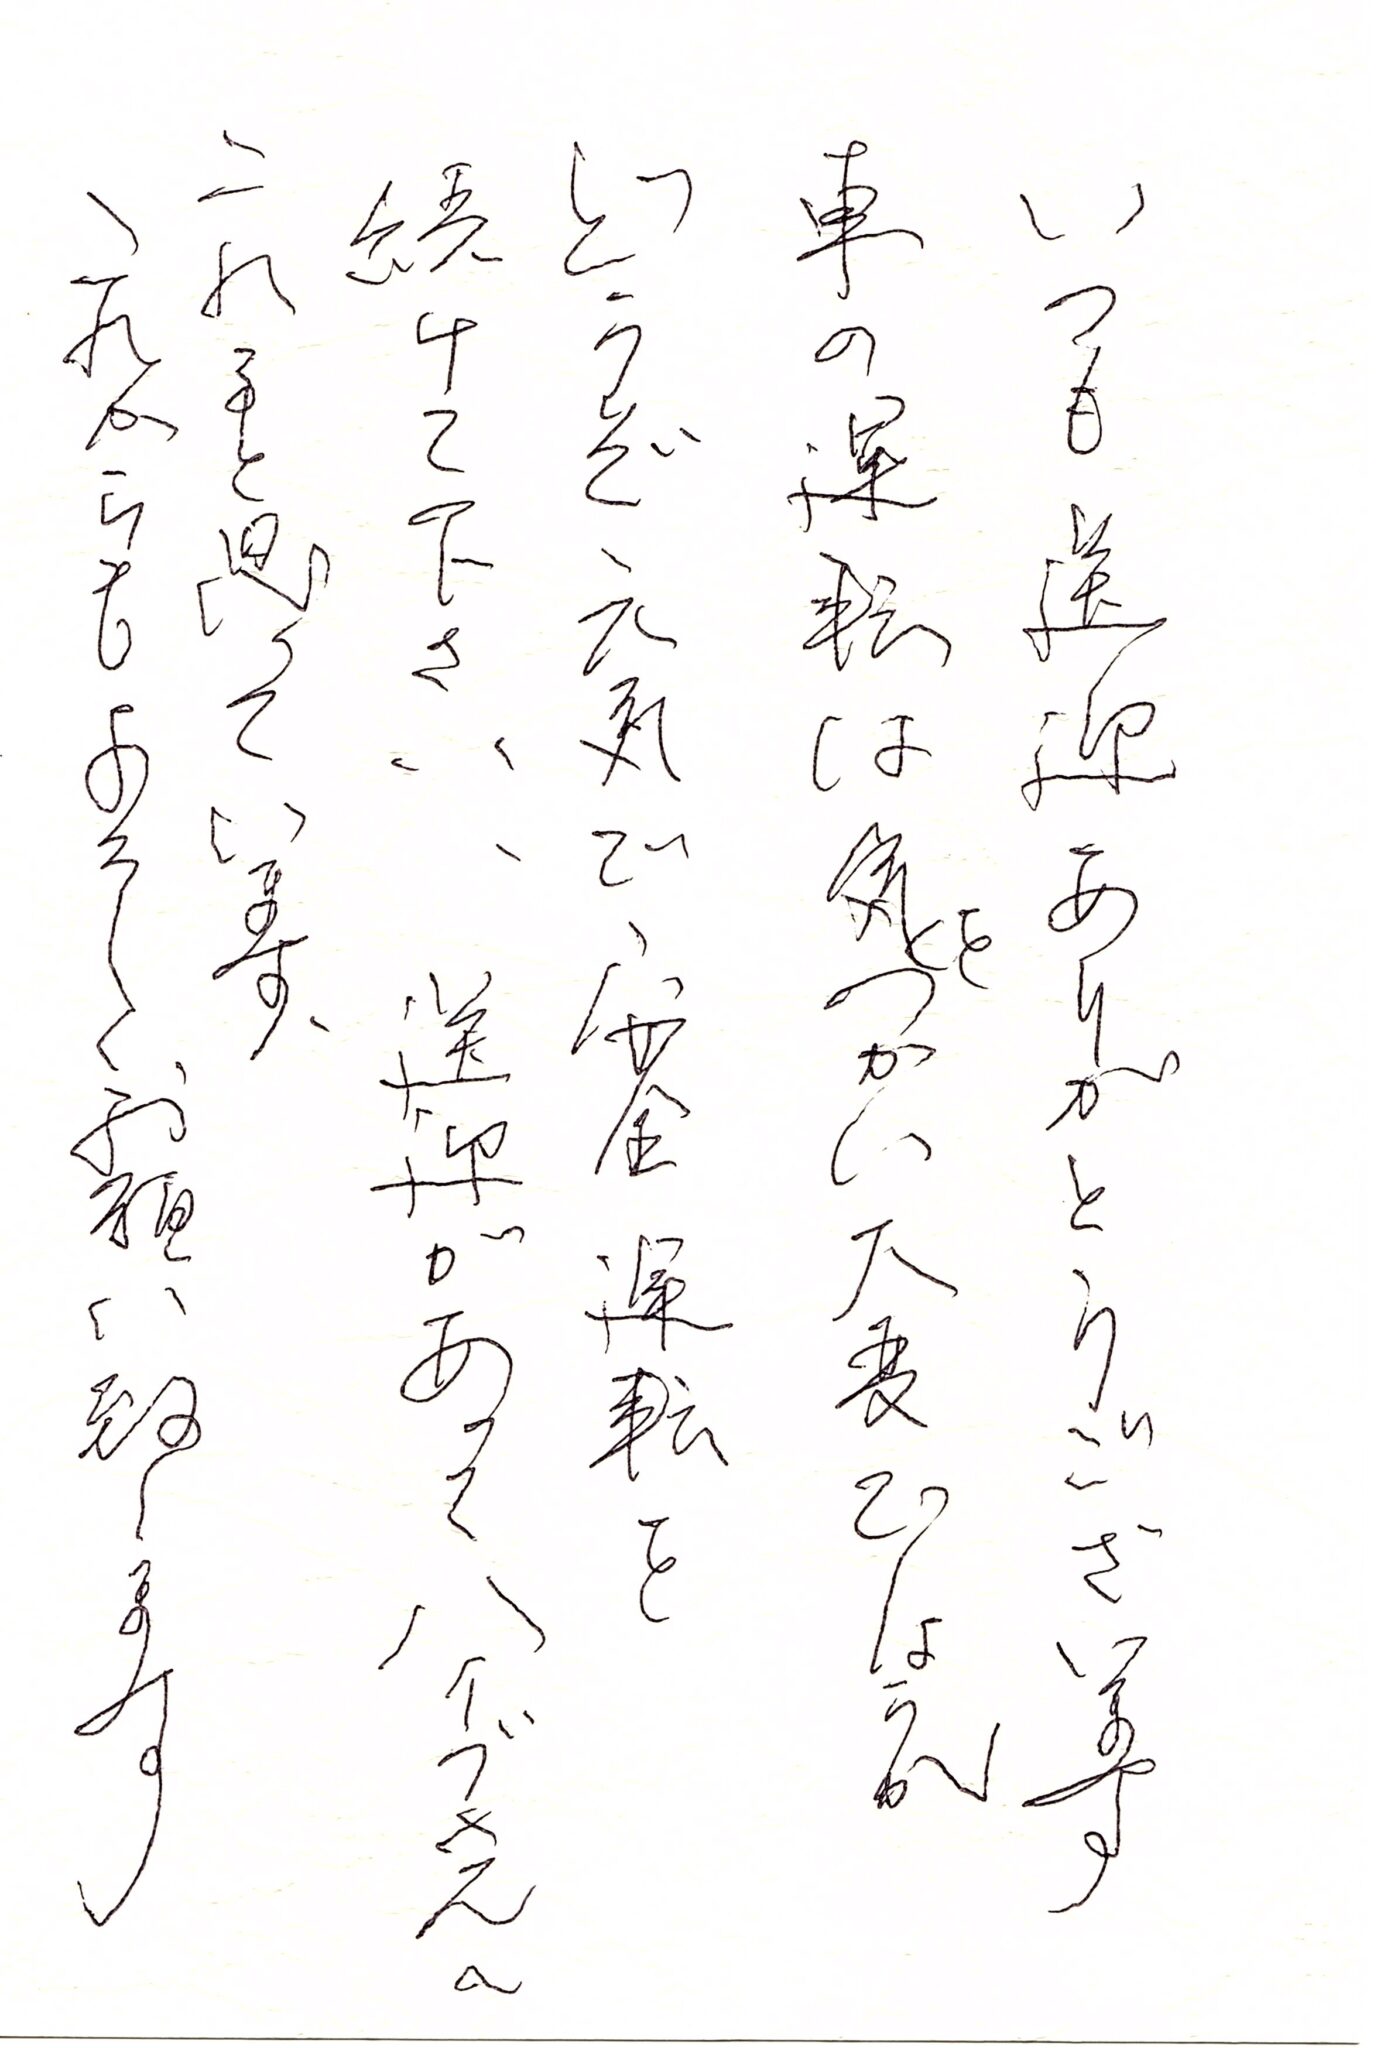 いつも送迎ありがとうございます
車の運転は気をつかい大変でしょうが
どうぞ元気で、安全運転を
続けて下さい、送迎があってハイブさんへ
これると思っています、
これからもよろしくお願い致します